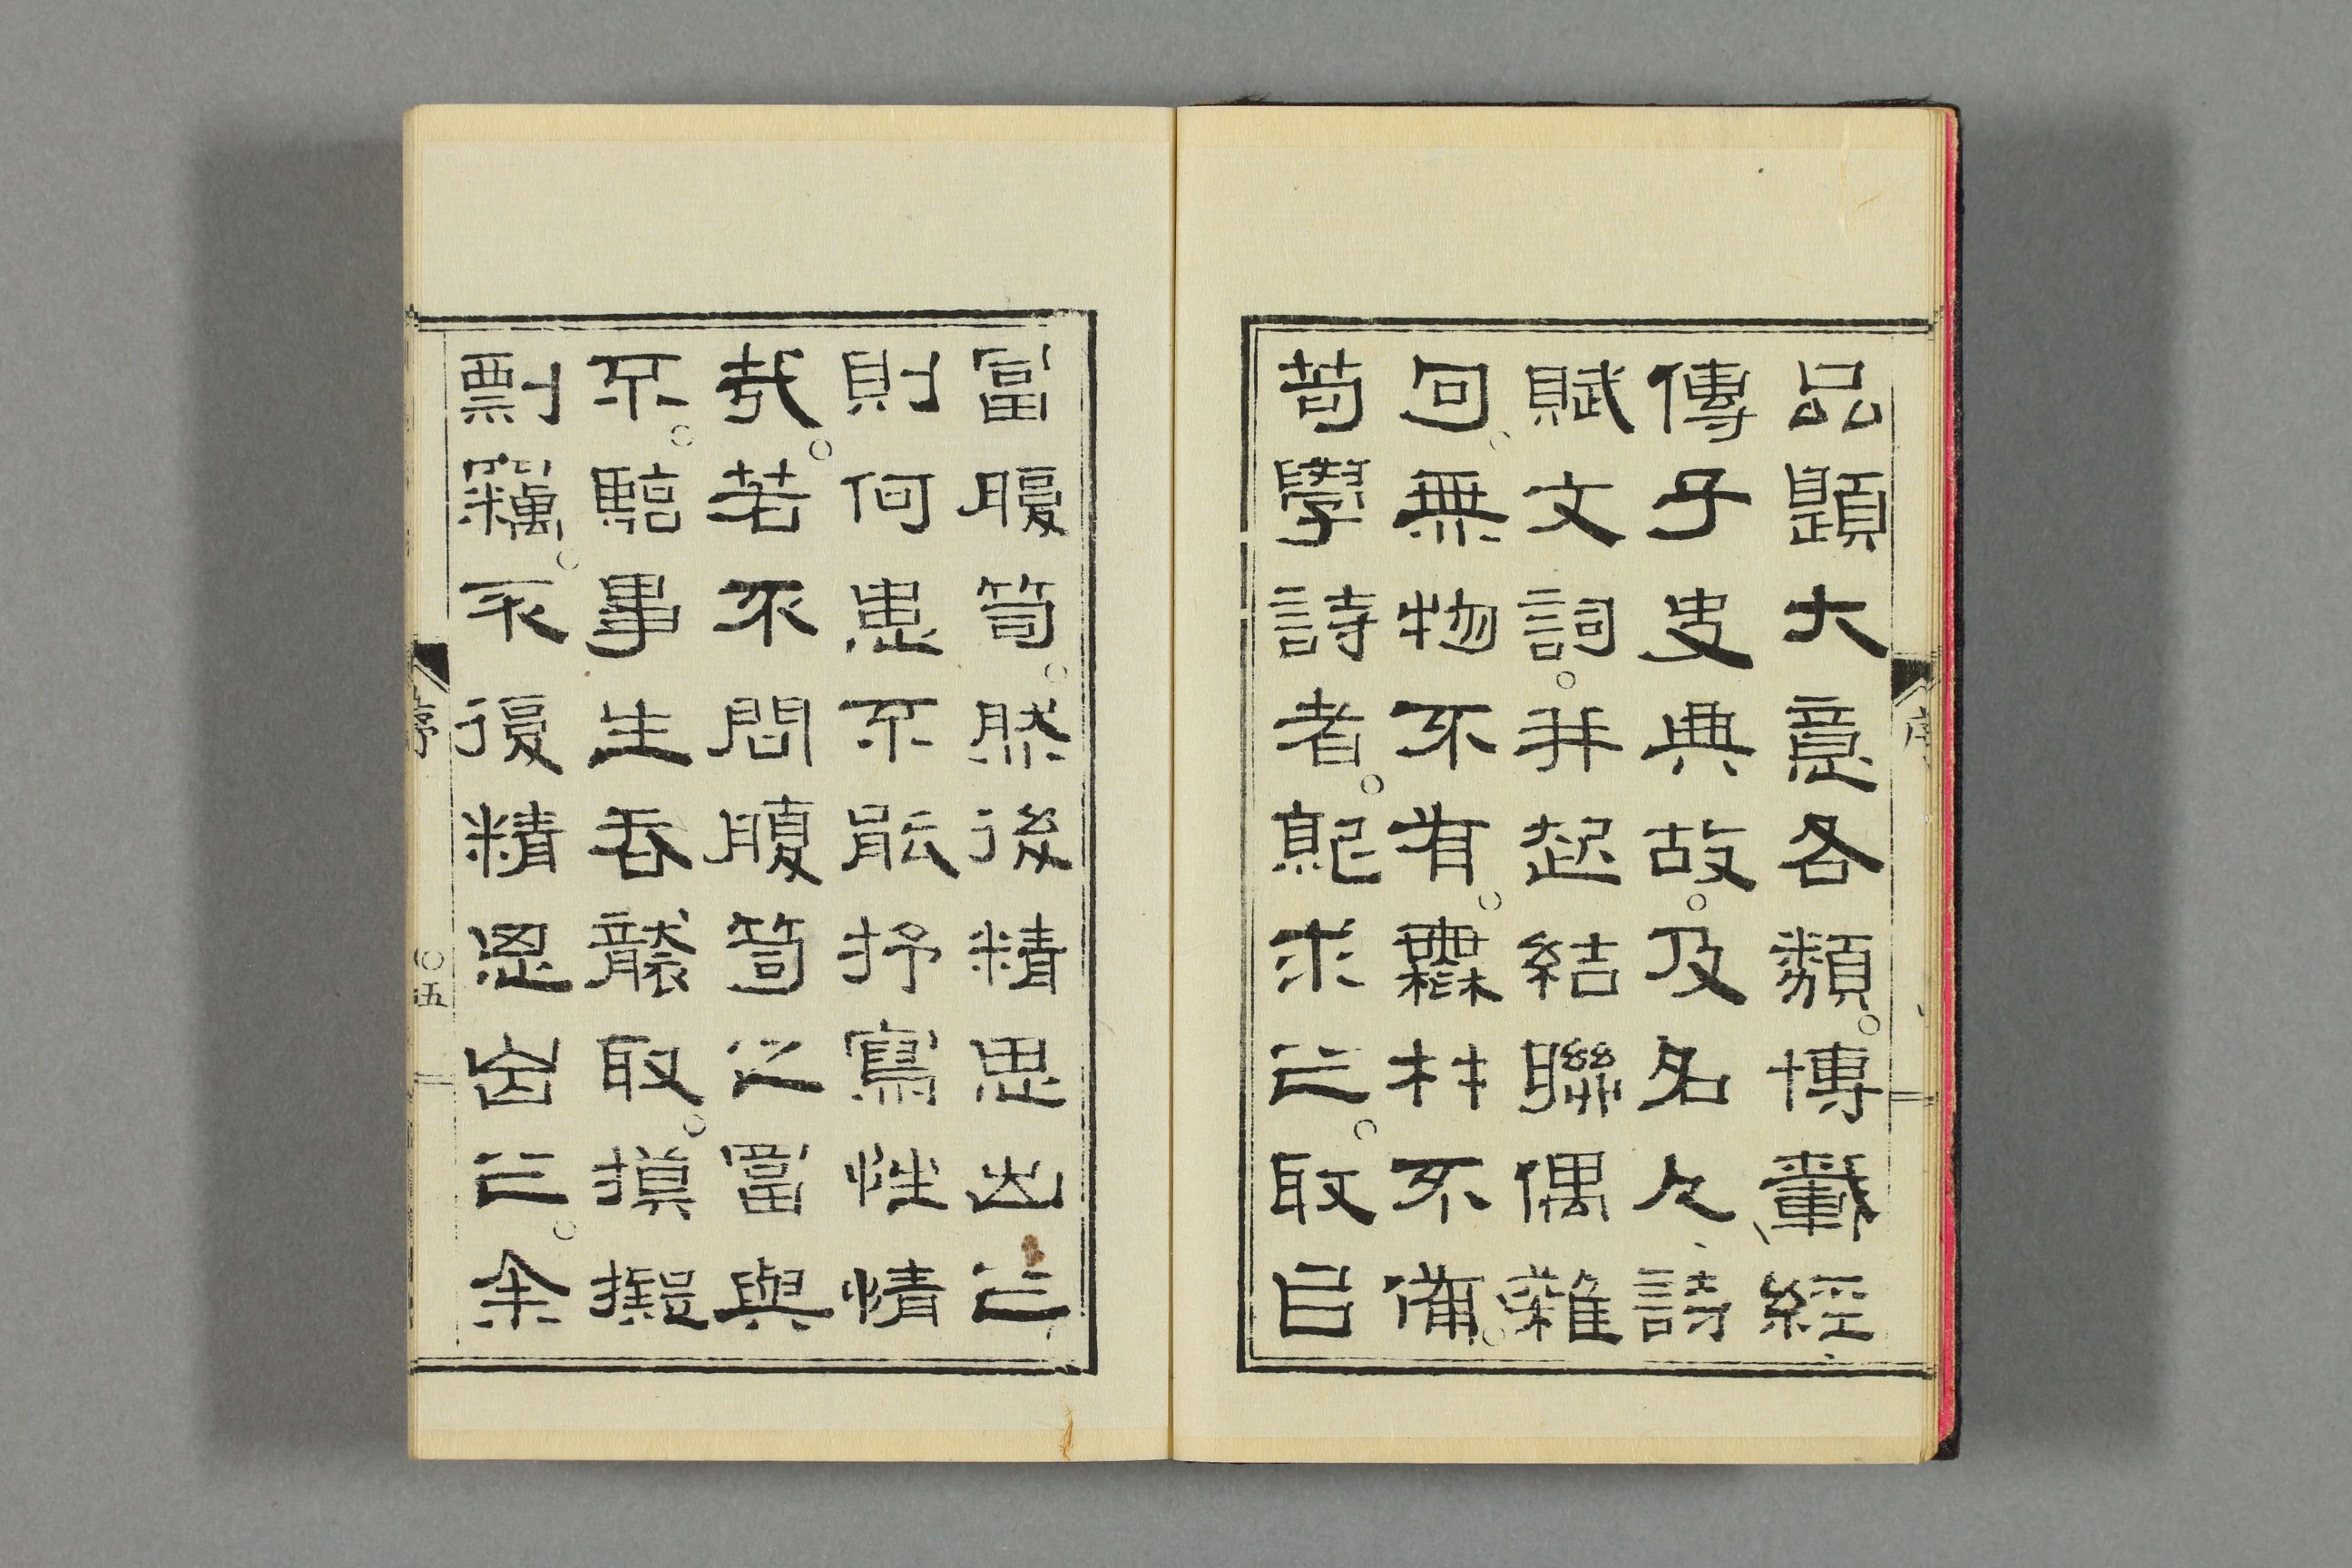 品題大意各類。博載經
傳子史典故。及名人詩
賦文詞。并起結聯偶雜
句。無物不有。無材不備。
苟學詩者。能求之。取㠯
富腹笥。然後精思出之
則何患不能抒寫性情
哉。若不問腹笥之富與
不。騐事生吞龍取。摸擬
剽竊。不復精思出之。余
序
〇五